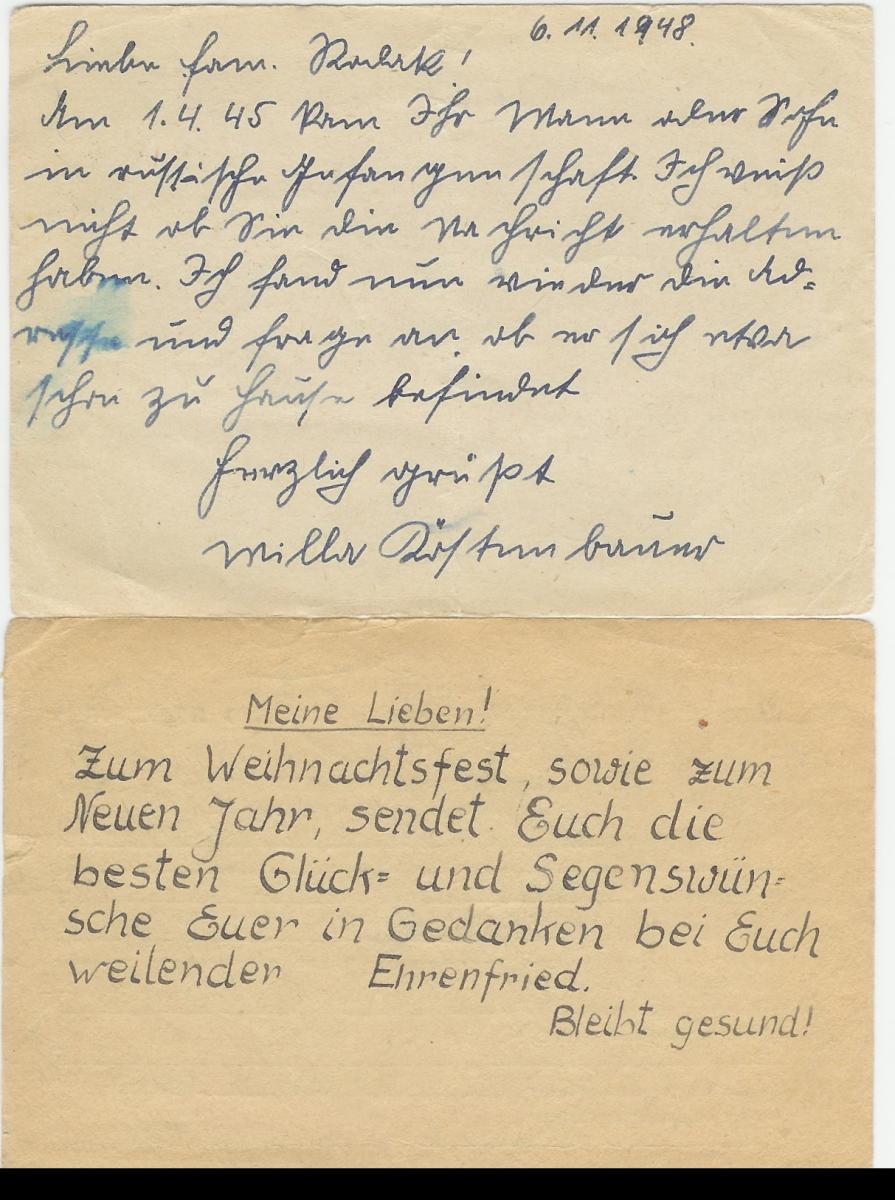 6. 11. 1948.
Liebe Fam. Kodak!
Am 1. 4. 45 kam Ihr Mann oder Sohn
in russische Gefangenschaft. Ich weiß
nicht ob Sie die Nachricht erhalten
haben. Ich fand nun wieder die Ad=
resse und frage an, ob er sich etwa
schon zu Hause befindet
Herzlich grüßt
Willa Köstenbauer
Meine Lieben!
Zum Weihnachtsfest, sowie zum
Neuen Jahr, sendet Euch die
besten Glück= und Segenswün=
sche Euer in Gedanken bei Euch
weilender Ehrenfried.
Bleibt gesund!